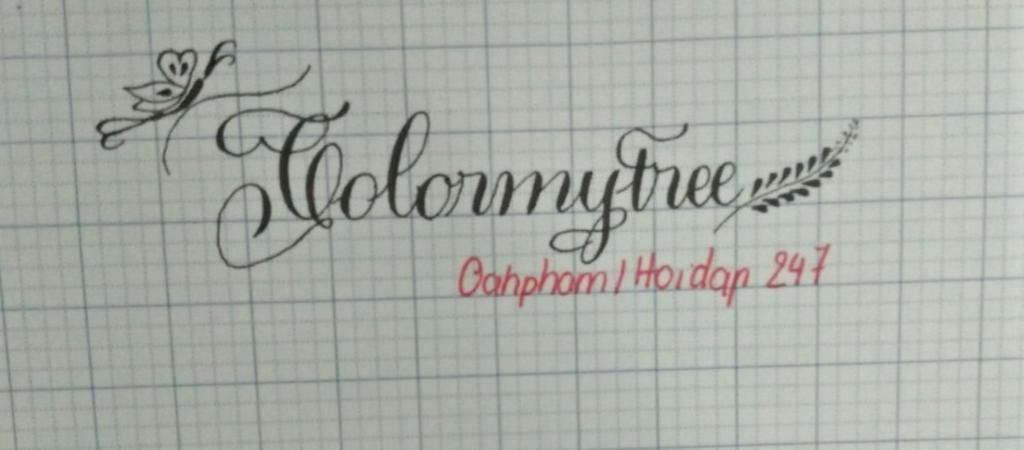 Colormytree
Oahpham/Hoidap 247